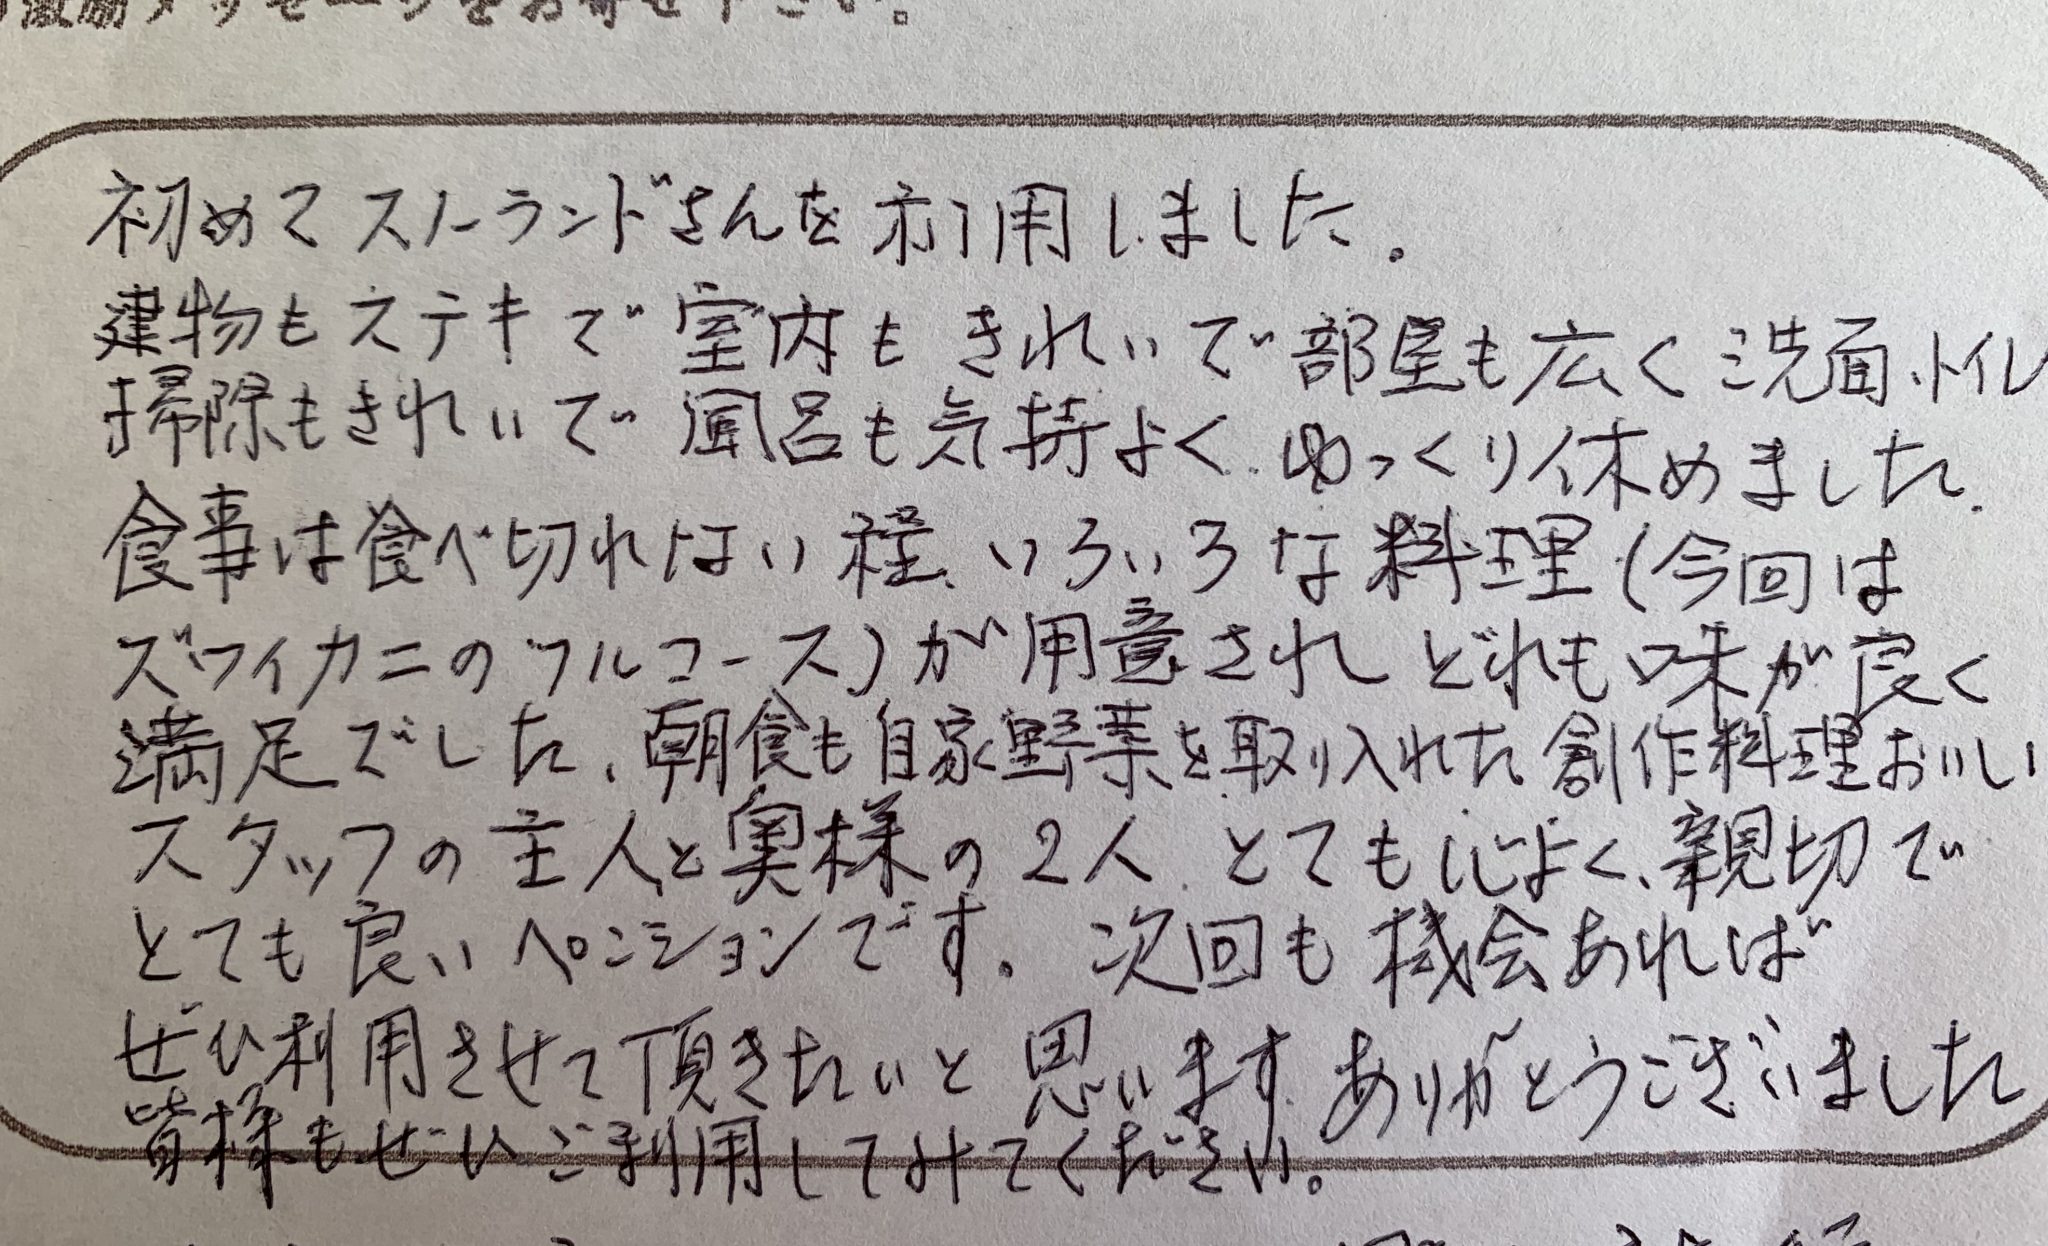 激励メッセージをお寄せ下さい。
初めてストーランドさんを利用しました.
建物もステキで室内もきれいで部屋も広く洗面、トイレ
掃除もきれいで風呂も気持よく、ゆっくり休めました.
食事は食べ切れない程、いろいろな料理(今回は
ズワイカニのフルコース)が用意されどれも味が良く
満足でした、朝食も自家野菜を取り入れた創作料理おいしい
スタッフの主人と奥様の2人、とても心よく、親切で
とても良いペンションです。次回も機会あれば
ぜひ利用させて頂きたいと思います.ありがとうございました
皆様もぜひご利用してみてください。